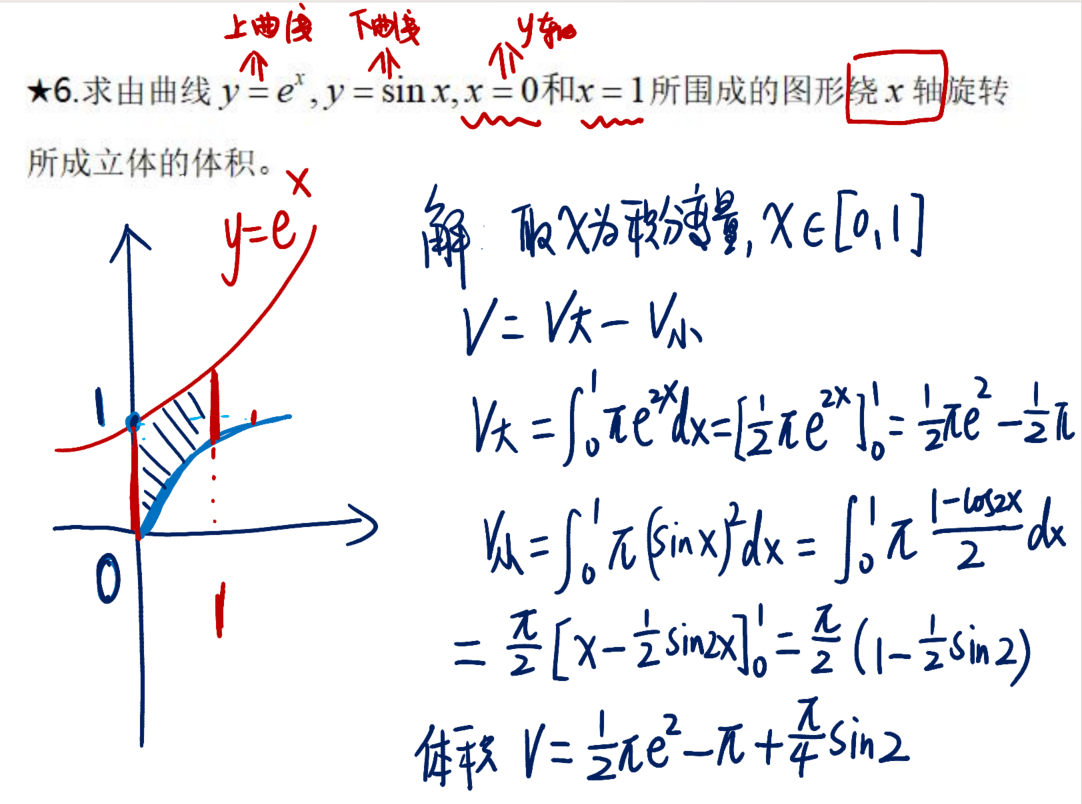 上曲线 下曲线 y轴
★6.求由曲线 y = e^x, y = sin x, x = 0和x = 1所围成的图形绕 x 轴旋转
所成立体的体积。
y=e^x
解: 取x为积分变量, x∈[0,1]
V = V大 - V小
1
V大 = ∫₀¹ πe^{2x}dx = [½πe^{2x}]₀¹ = ½πe² - ½π
V小 = ∫₀¹ π(sinx)²dx = ∫₀¹ π (1-cos2x)/2 dx
0 1
= π/2 [x - ½sin2x]₀¹ = π/2 (1 - ½sin2)
体积 V = ½πe² - π + π/4 sin2